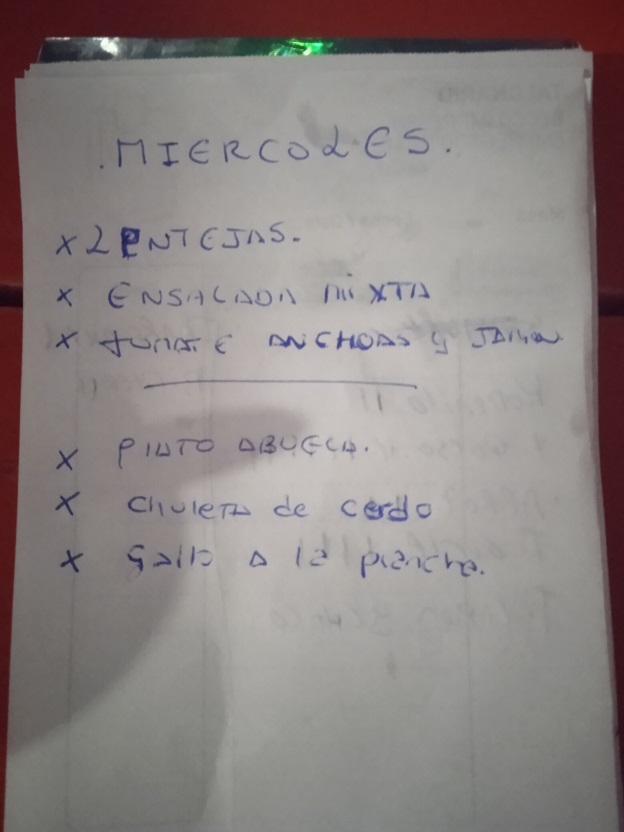 .MIERCOLES.
x LENTEJAS.
x ENSALADA MIXTA
x TOMATE ANCHOAS y JAMON
x PLATO ABUELA.
x Chuleta de cerdo
x Gallo A la plancha.